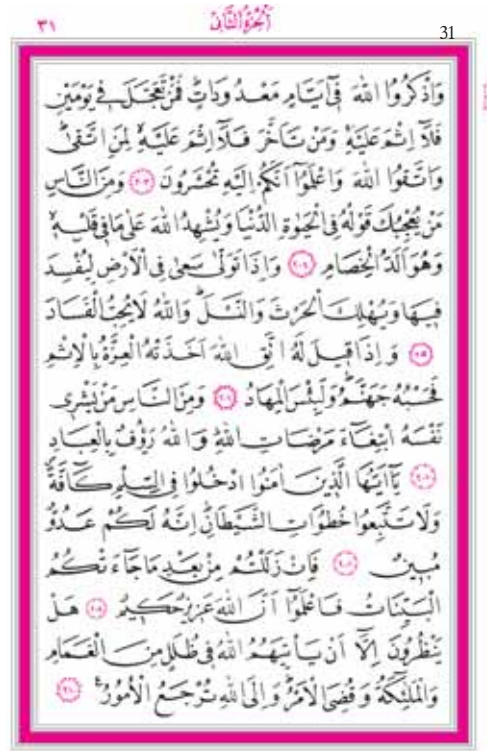 ٣١ اَلْجُزْءُ الثَّانِى 31
وَاذْكُرُوا اللّٰهَ فٖٓى اَيَّامٍ مَعْدُودَاتٍؕ فَمَنْ تَعَجَّلَ فٖى يَوْمَيْنِ
فَلَٓا اِثْمَ عَلَيْهِۚ وَمَنْ تَاَخَّرَ فَلَٓا اِثْمَ عَلَيْهِۙ لِمَنِ اتَّقٰىؕ
وَاتَّقُوا اللّٰهَ وَاعْلَمُٓوا اَنَّكُمْ اِلَيْهِ تُحْشَرُونَ ﴿٢٠٣﴾ وَمِنَ النَّاسِ
مَنْ يُعْجِبُكَ قَوْلُهُ فِى الْحَيٰوةِ الدُّنْيَا وَيُشْهِدُ اللّٰهَ عَلٰى مَا فٖى قَلْبِهٖۙ
وَهُوَ اَلَدُّ الْخِصَامِ ﴿٢٠٤﴾ وَاِذَا تَوَلّٰى سَعٰى فِى الْاَرْضِ لِيُفْسِدَ
فٖيهَا وَيُهْلِكَ الْحَرْثَ وَالنَّسْلَؕ وَاللّٰهُ لَا يُحِبُّ الْفَسَادَ
﴿٢٠٥﴾ وَاِذَا قٖيلَ لَهُ اتَّقِ اللّٰهَ اَخَذَتْهُ الْعِزَّةُ بِالْاِثْمِ
فَحَسْبُهُ جَهَنَّمُؕ وَلَبِئْسَ الْمِهَادُ ﴿٢٠٦﴾ وَمِنَ النَّاسِ مَنْ يَشْرٖى
نَفْسَهُ ابْتِغَٓاءَ مَرْضَاتِ اللّٰهِؕ وَاللّٰهُ رَؤُفٌ بِالْعِبَادِ
﴿٢٠٧﴾ يَٓا اَيُّهَا الَّذٖينَ اٰمَنُوا ادْخُلُوا فِى السِّلْمِ كَٓافَّةًࣕ
وَلَا تَتَّبِعُوا خُطُوَاتِ الشَّيْطَانِؕ اِنَّهُ لَكُمْ عَدُوٌّ
مُبٖينٌ ﴿٢٠٨﴾ فَاِنْ زَلَلْتُمْ مِنْ بَعْدِ مَا جَٓاءَتْكُمُ
الْبَيِّنَاتُ فَاعْلَمُٓوا اَنَّ اللّٰهَ عَزٖيزٌ حَكٖيمٌ ﴿٢٠٩﴾ هَلْ
يَنْظُرُونَ اِلَّٓا اَنْ يَاْتِيَهُمُ اللّٰهُ فٖى ظُلَلٍ مِنَ الْغَمَامِ
وَالْمَلٰٓئِكَةُ وَقُضِىَ الْاَمْرُؕ وَاِلَى اللّٰهِ تُرْجَعُ الْاُمُورُ ﴿٢١٠﴾